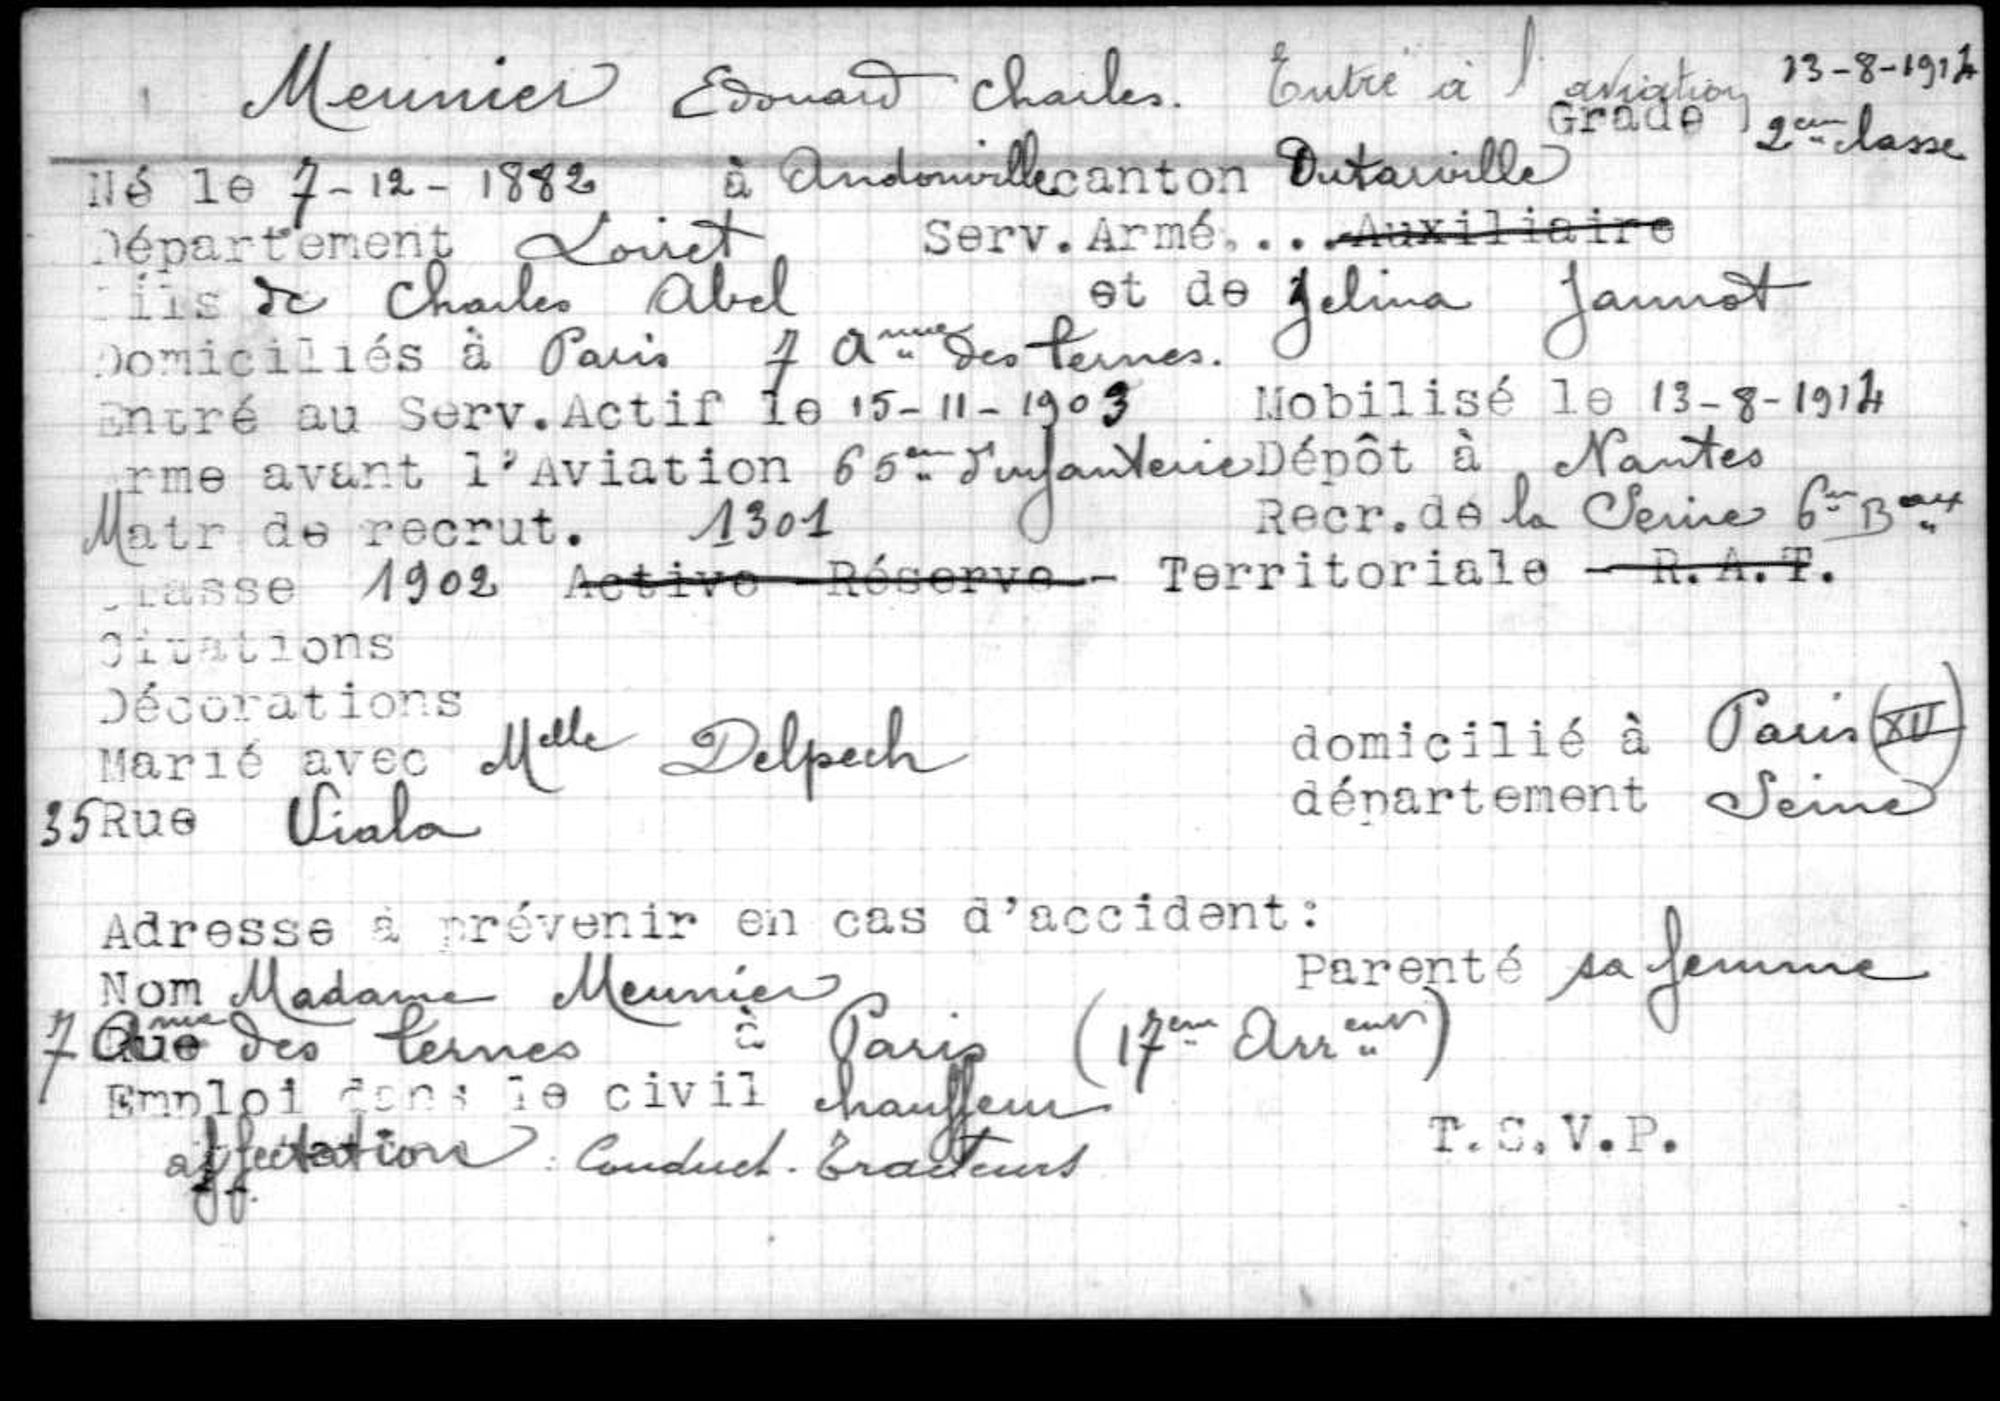 Meunier Edouard Charles. Entré à l'aviation 13-8-1914
Grade 2ème classe
Né le 7-12-1882 à Andonville canton Outarville
Département Loiret Serv.Armé....Auxiliaire
Fils de Charles Abel et de Zelina Jannot
Domiciliés à Paris 7 Anue des Ternes.
Entré au Serv.Actif le 15-11-1903 Mobilisé le 13-8-1914
Arme avant l'Aviation 65ème d'infanterie Dépôt à Nantes
Matr de recrut. 1301 Recr.de la Seine 6em Baux
Classe 1902 Active Réserve - Territoriale - R.A.T.
Citations
Décorations
Marié avec Melle Delpech domicilié à Paris (XV)
35 Rue Viala département Seine
Adresse à prévenir en cas d'accident:
Nom Madame Meunier Parenté sa femme
7 Anue des Ternes à Paris (17em Arrent)
Emploi dans le civil chauffeur
affectation : Conduct. Tracteurs T.S.V.P.